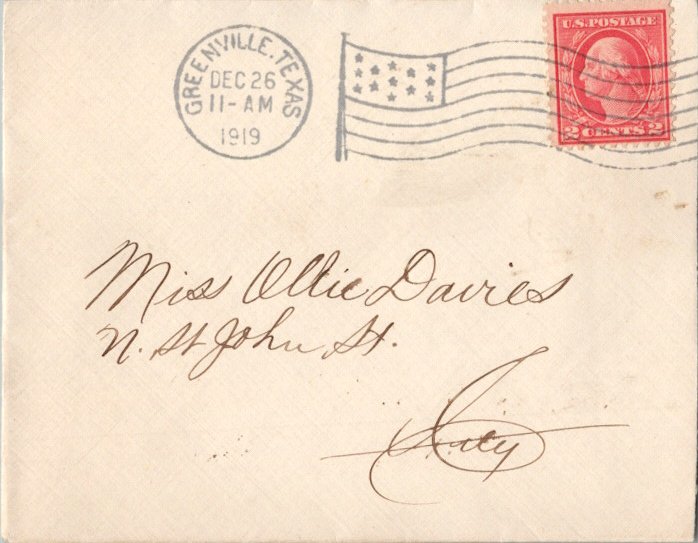 GREENVILLE, TEXAS
DEC 26
11-AM
1919
U.S. POSTAGE
2 CENTS 2
Miss Ollie Davies
N. St John St.
City